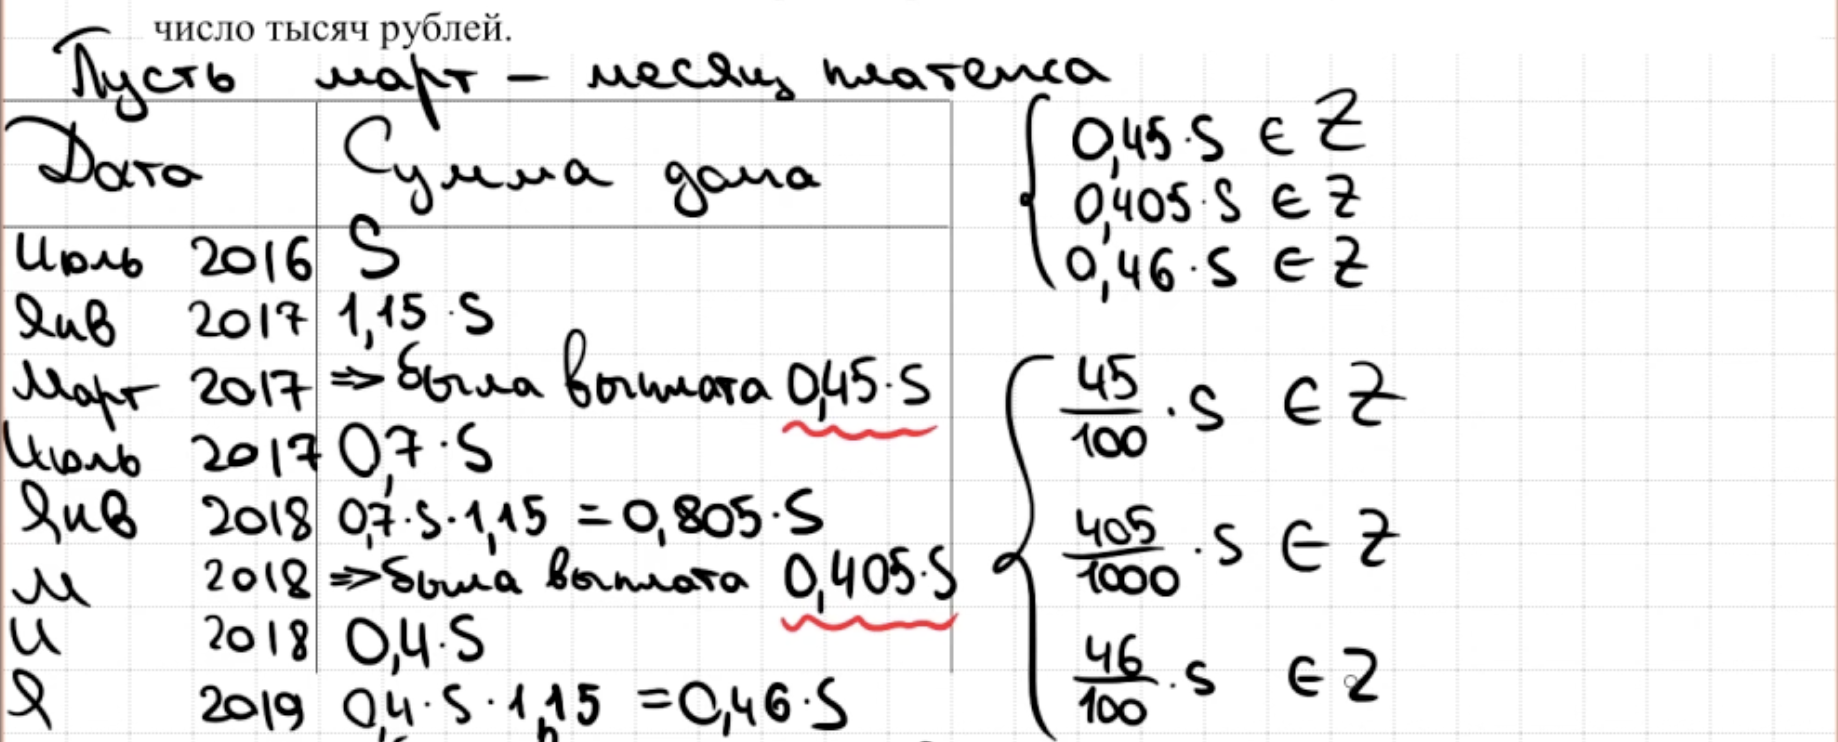 число тысяч рублей.
Пусть март – месяц платежа
Дата Сумма долга
Июль 2016 S
Янв 2017 1,15·S
Март 2017 => была выплата 0,45·S
Июль 2017 0,7·S
Янв 2018 0,7·S·1,15 = 0,805·S
М 2018 => была выплата 0,405·S
И 2018 0,4·S
Я 2019 0,4·S·1,15 = 0,46·S
0,45·S ∈ Z
0,405·S ∈ Z
0,46·S ∈ Z
45/100 · S ∈ Z
405/1000 · S ∈ Z
46/100 · S ∈ Z